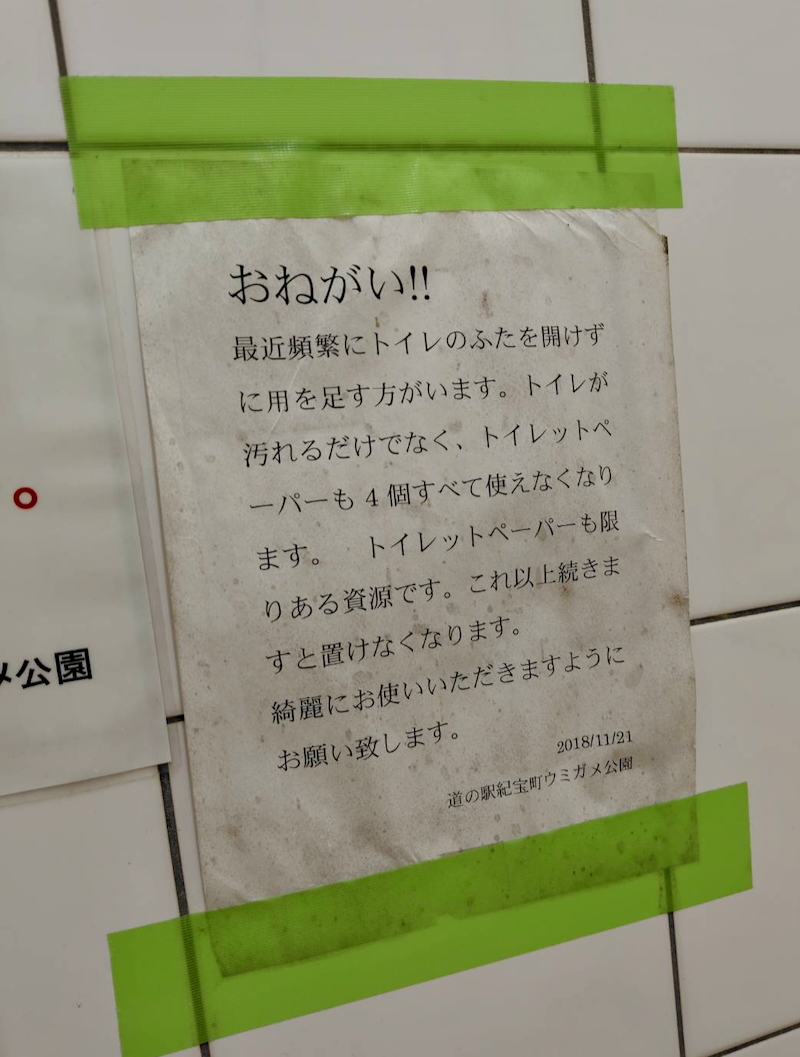 おねがい!!
最近頻繁にトイレのふたを開けず
に用を足す方がいます。トイレが
汚れるだけでなく、トイレットペ
ーパーも 4 個すべて使えなくなり
ます。　トイレットペーパーも限
りある資源です。これ以上続きま
すと置けなくなります。
綺麗にお使いいただきますように
お願い致します。
2018/11/21
道の駅紀宝町ウミガメ公園
。
メ公園